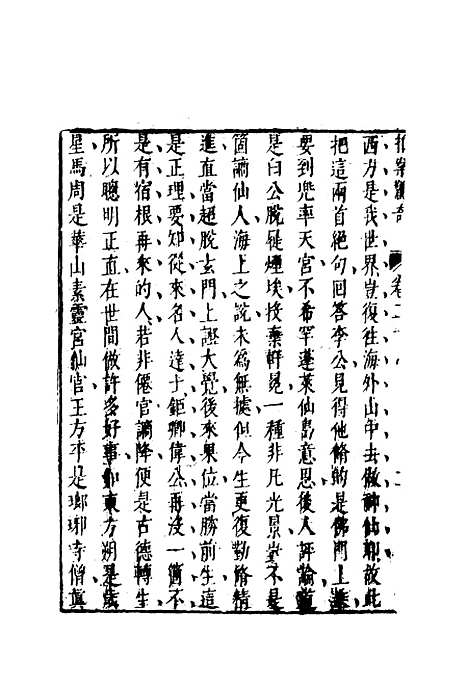 拍案驚奇 卷二十八 二
西方是我世界豈復往海外山中去做神仙耶故此
把這兩首絕句回答李公見得他脩的是佛門上乘
要到兜率天宮不希罕蓬萊仙島意思後人評論道
是白公脫屣煙埃投棄軒冕一種非凡光景豈不是
箇謫仙人海上之說未為無據但今生更復勤脩精
進直當超脫玄門上證大覺後來果位當勝前生這
是正理要知從來名人達士鉅卿偉公再沒一箇不
是有宿根再來的人若非僊官謫降便是古德轉生
所以聰明正直在世間做許多好事如東方朔是歲
星馬周是華山素靈宮仙官王方平是瑯琊寺僧真